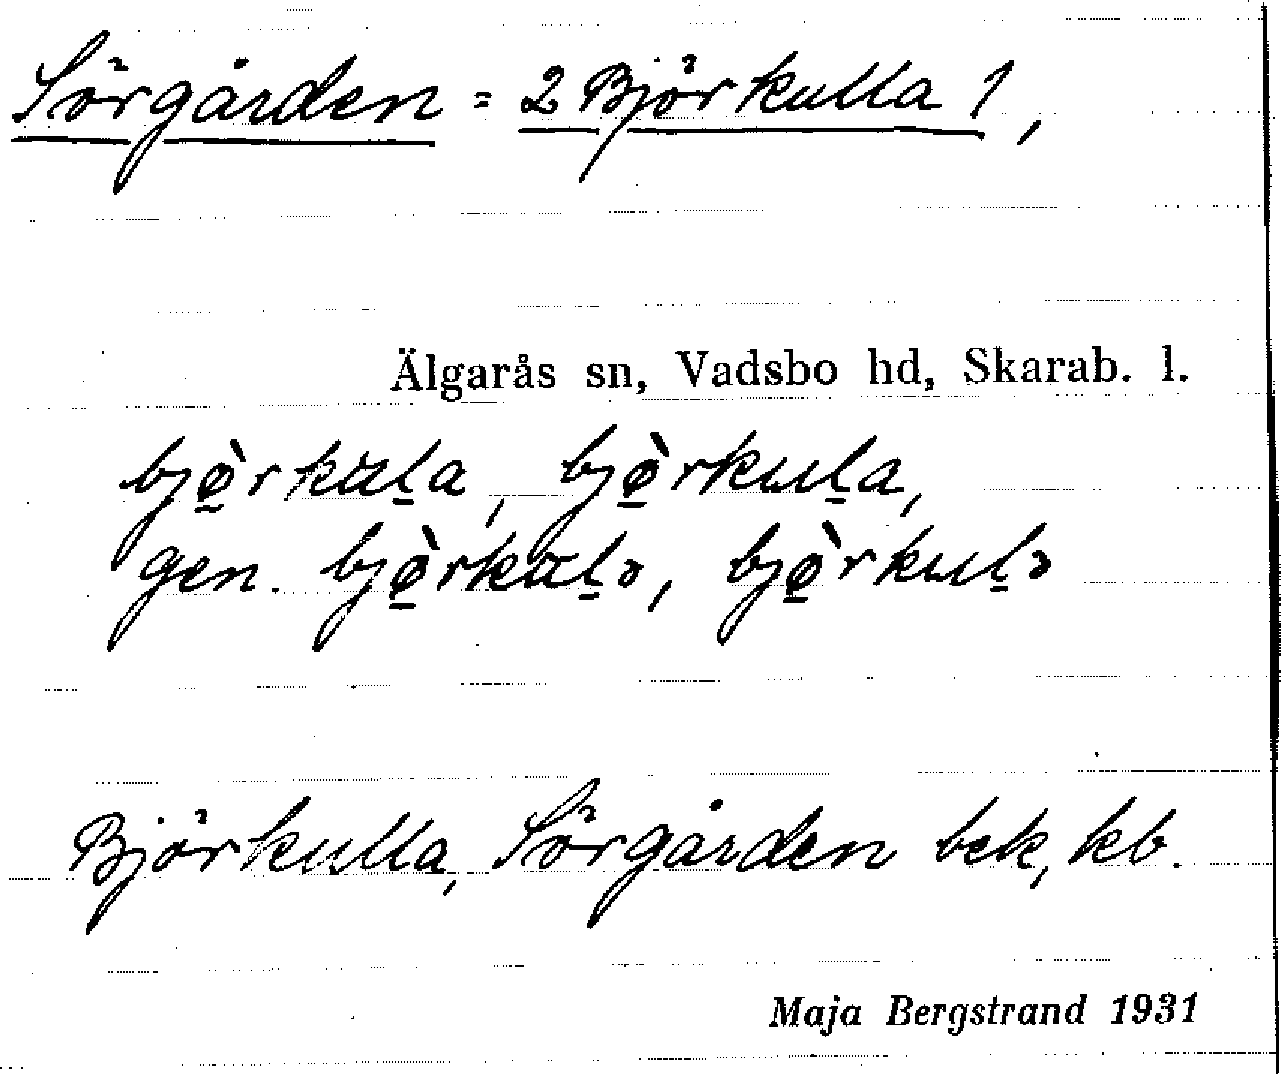 Sörgården = 2 Björkulla 1,
Älgarås sn, Vadsbo hd, Skarab. l.
bjø̠̀rkäḻa, bjø̠̀rkuḻa,
gen. bjø̠̀rkäḻɔ, bjø̠̀rkuḻɔ
Björkulla, Sörgården bek, kb.
Maja Bergstrand 1931